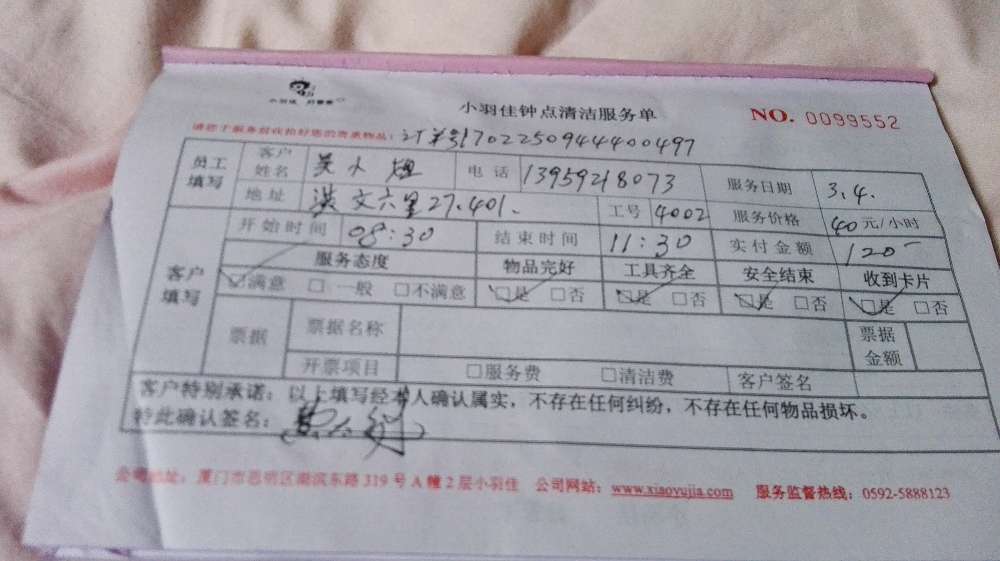 小羽佳
小羽佳钟点清洁服务单
NO. 0099552
请您于服务前收拾好您的贵重物品：订单号170225094444400497
员工填写 客户姓名 电话 13959218073 服务日期 3.4.
地址 洪文六里27.401. 工号 4002 服务价格 40元/小时
客户填写 开始时间 08:30 结束时间 11:30 实付金额 120
服务态度 物品完好 工具齐全 安全结束 收到卡片
☑满意 □一般 □不满意 ☑是 □否 ☑是 □否 ☑是 □否 ☑是 □否
票据 票据名称 票据金额
开票项目 □服务费 □清洁费 客户签名
客户特别承诺：以上填写经本人确认属实，不存在任何纠纷，不存在任何物品损坏。
特此确认签名：
公司地址：厦门市思明区湖滨东路319号A幢2层小羽佳 公司网站：www.xiaoyujia.com 服务监督热线：0592-5888123